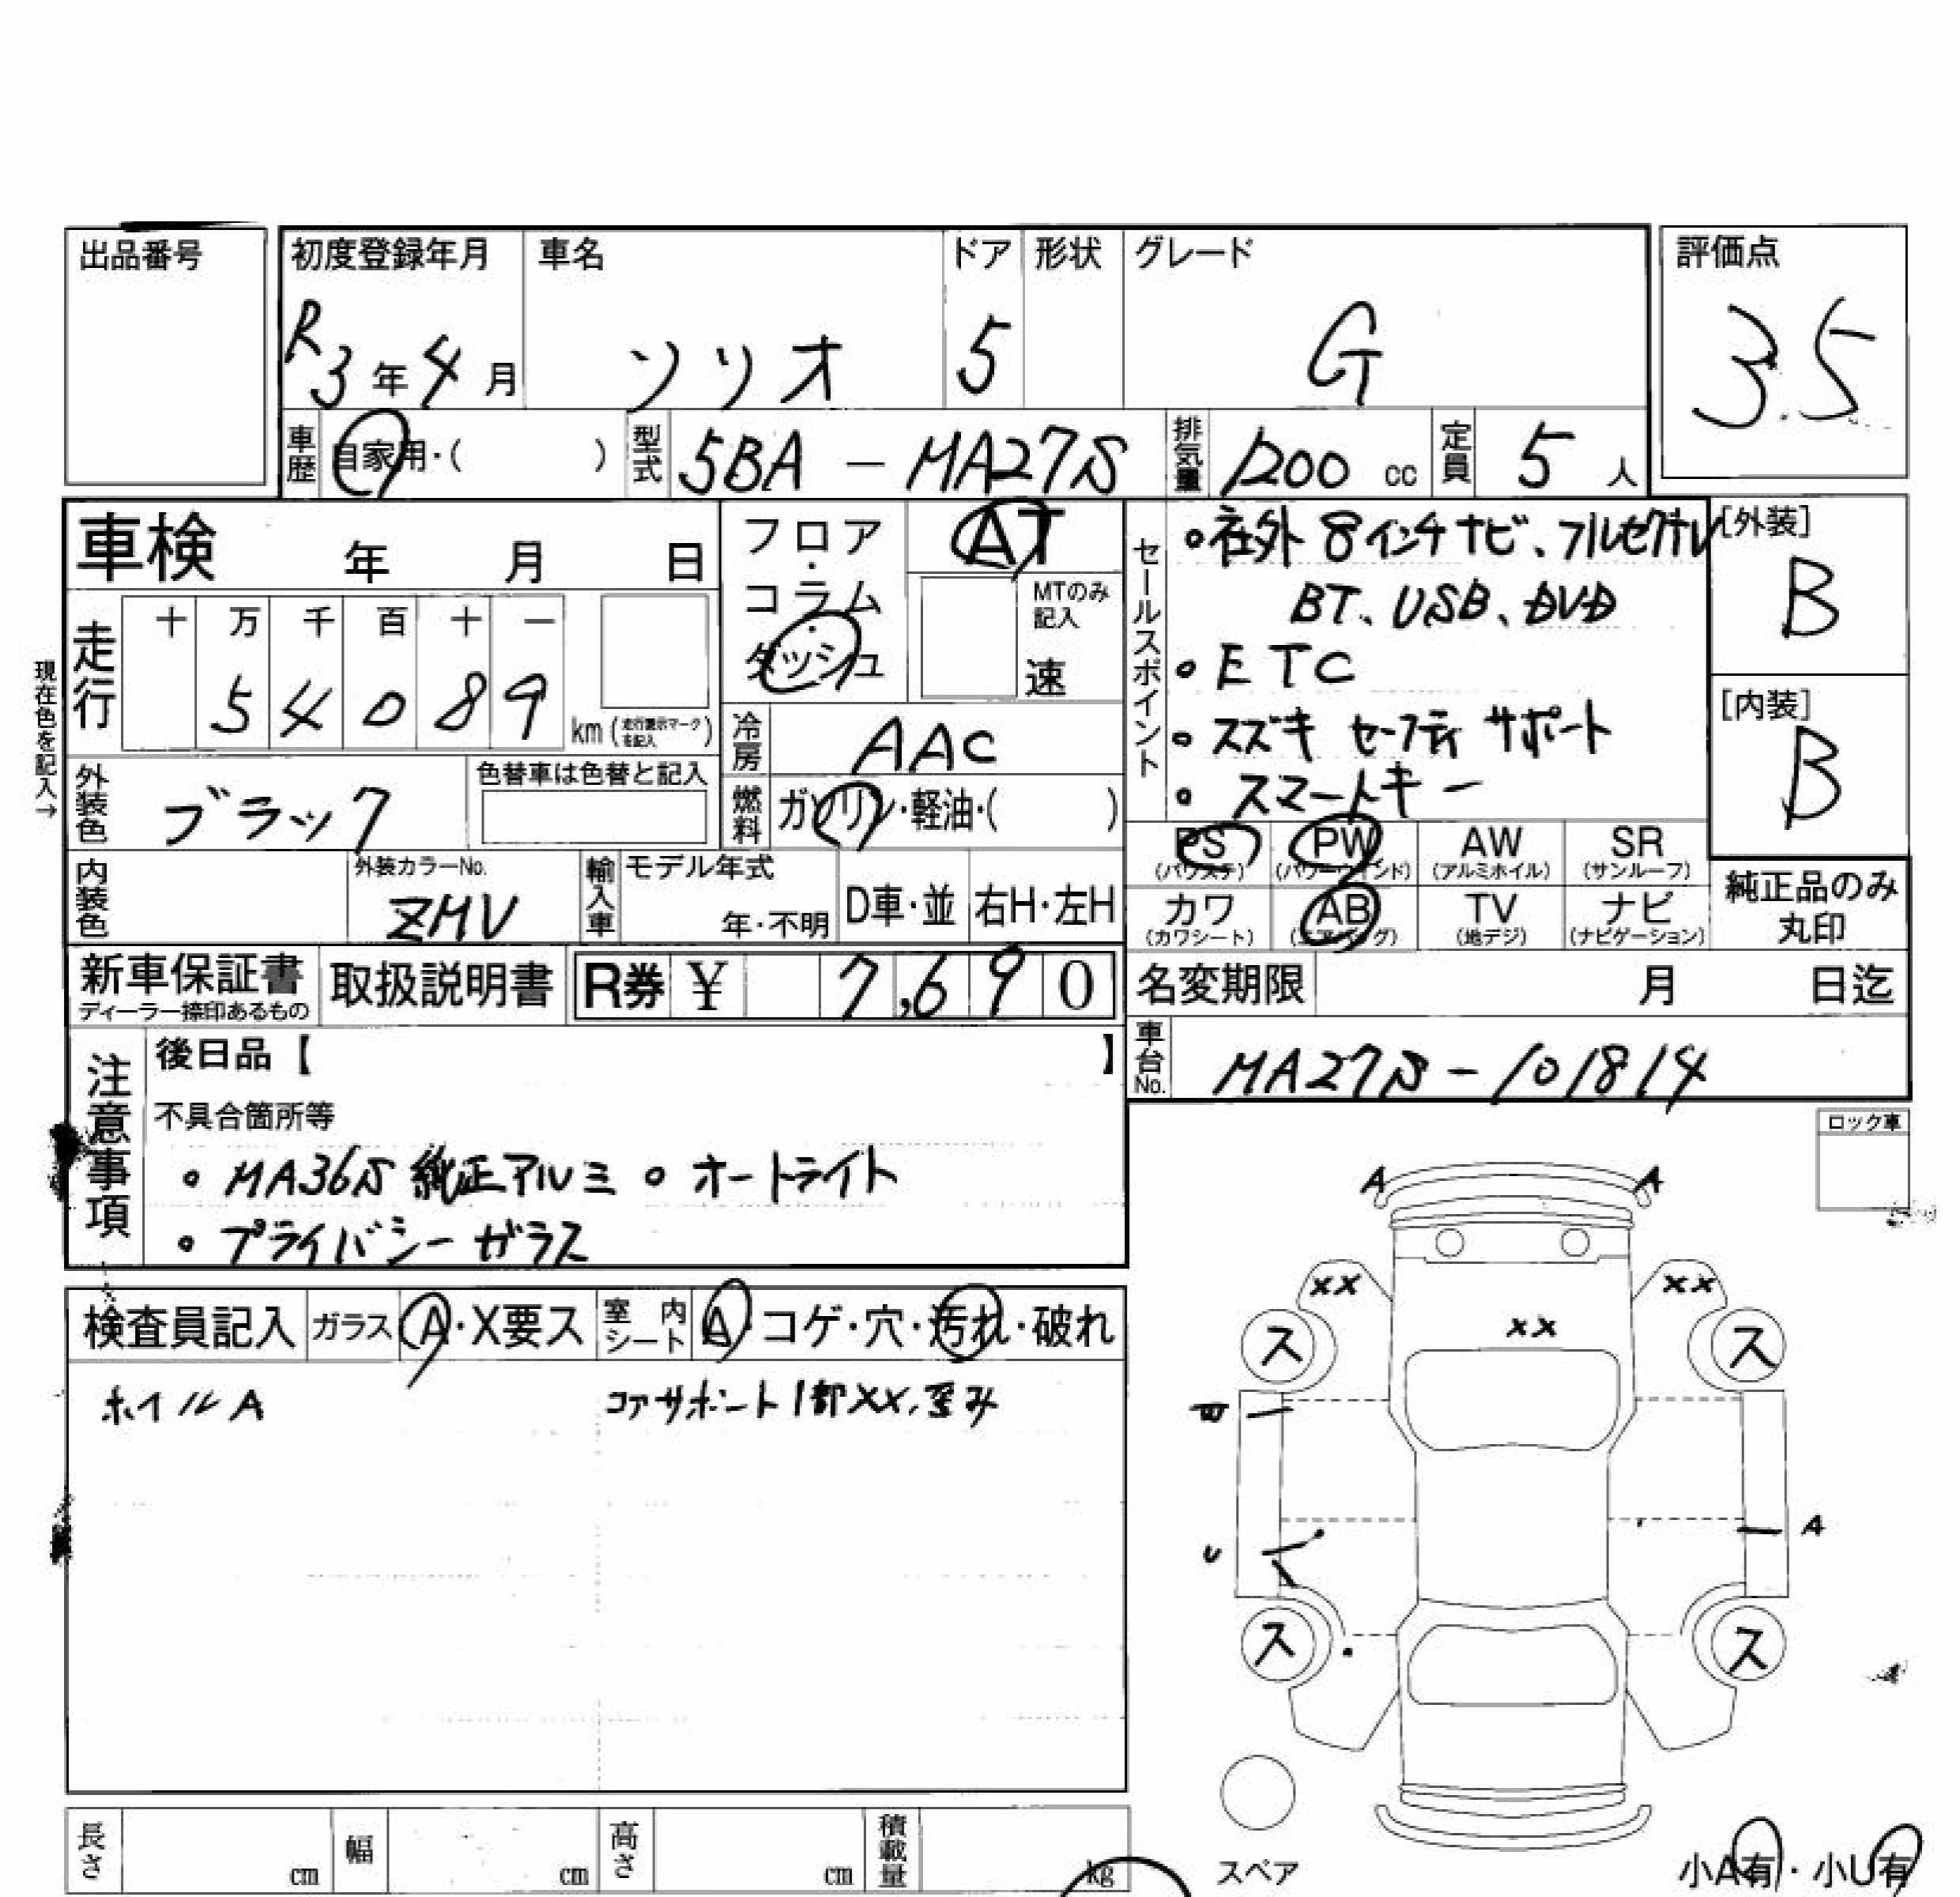 出品番号
初度登録年月 車名 ドア 形状 グレード 評価点
R3年4月 ソリオ 5 G 3.5
車歴 自家用・( ) 型式 5BA-MA27S 排気量 1200 cc 定員 5 人
車検 年 月 日
フロア・コラム・ダッシュ
AT
MTのみ記入
速
現在色を記入→
走行 十 万 千 百 十 一
5 4 0 8 9 km (走行表示マークを記入)
冷房 AAC
外装色 ブラック 色替車は色替と記入
燃料 ガソリン・軽油・( )
内装色 外装カラーNo. ZMV
輸入車 モデル年式 年・不明 D車・並 右H・左H
新車保証書 ディーラー捺印あるもの 取扱説明書 R券 ¥ 7,690
セールスポイント
・社外8インチナビ、フルセグTV
BT、USB、DVD
・ETC
・スズキ セーフティ サポート
・スマートキー
[外装] B
[内装] B
PS (パワステ) PW (パワーウインド) AW (アルミホイル) SR (サンルーフ)
カワ (カワシート) AB (エアバッグ) TV (地デジ) ナビ (ナビゲーション)
純正品のみ丸印
名変期限 月 日迄
車台No. MA27S-101814
注意事項
後日品【 】
不具合箇所等
・MA36S 純正アルミ ・オートライト
・プライバシーガラス
検査員記入 ガラス A・X要ス 室内シート A・コゲ・穴・汚れ・破れ
ホイルA コアサポート1部XX、歪み
ロック車
A A
XX XX
XX
ス ス
A
U
ス ス
スペア
小A有・小U有
長さ cm 幅 cm 高さ cm 積載量 kg